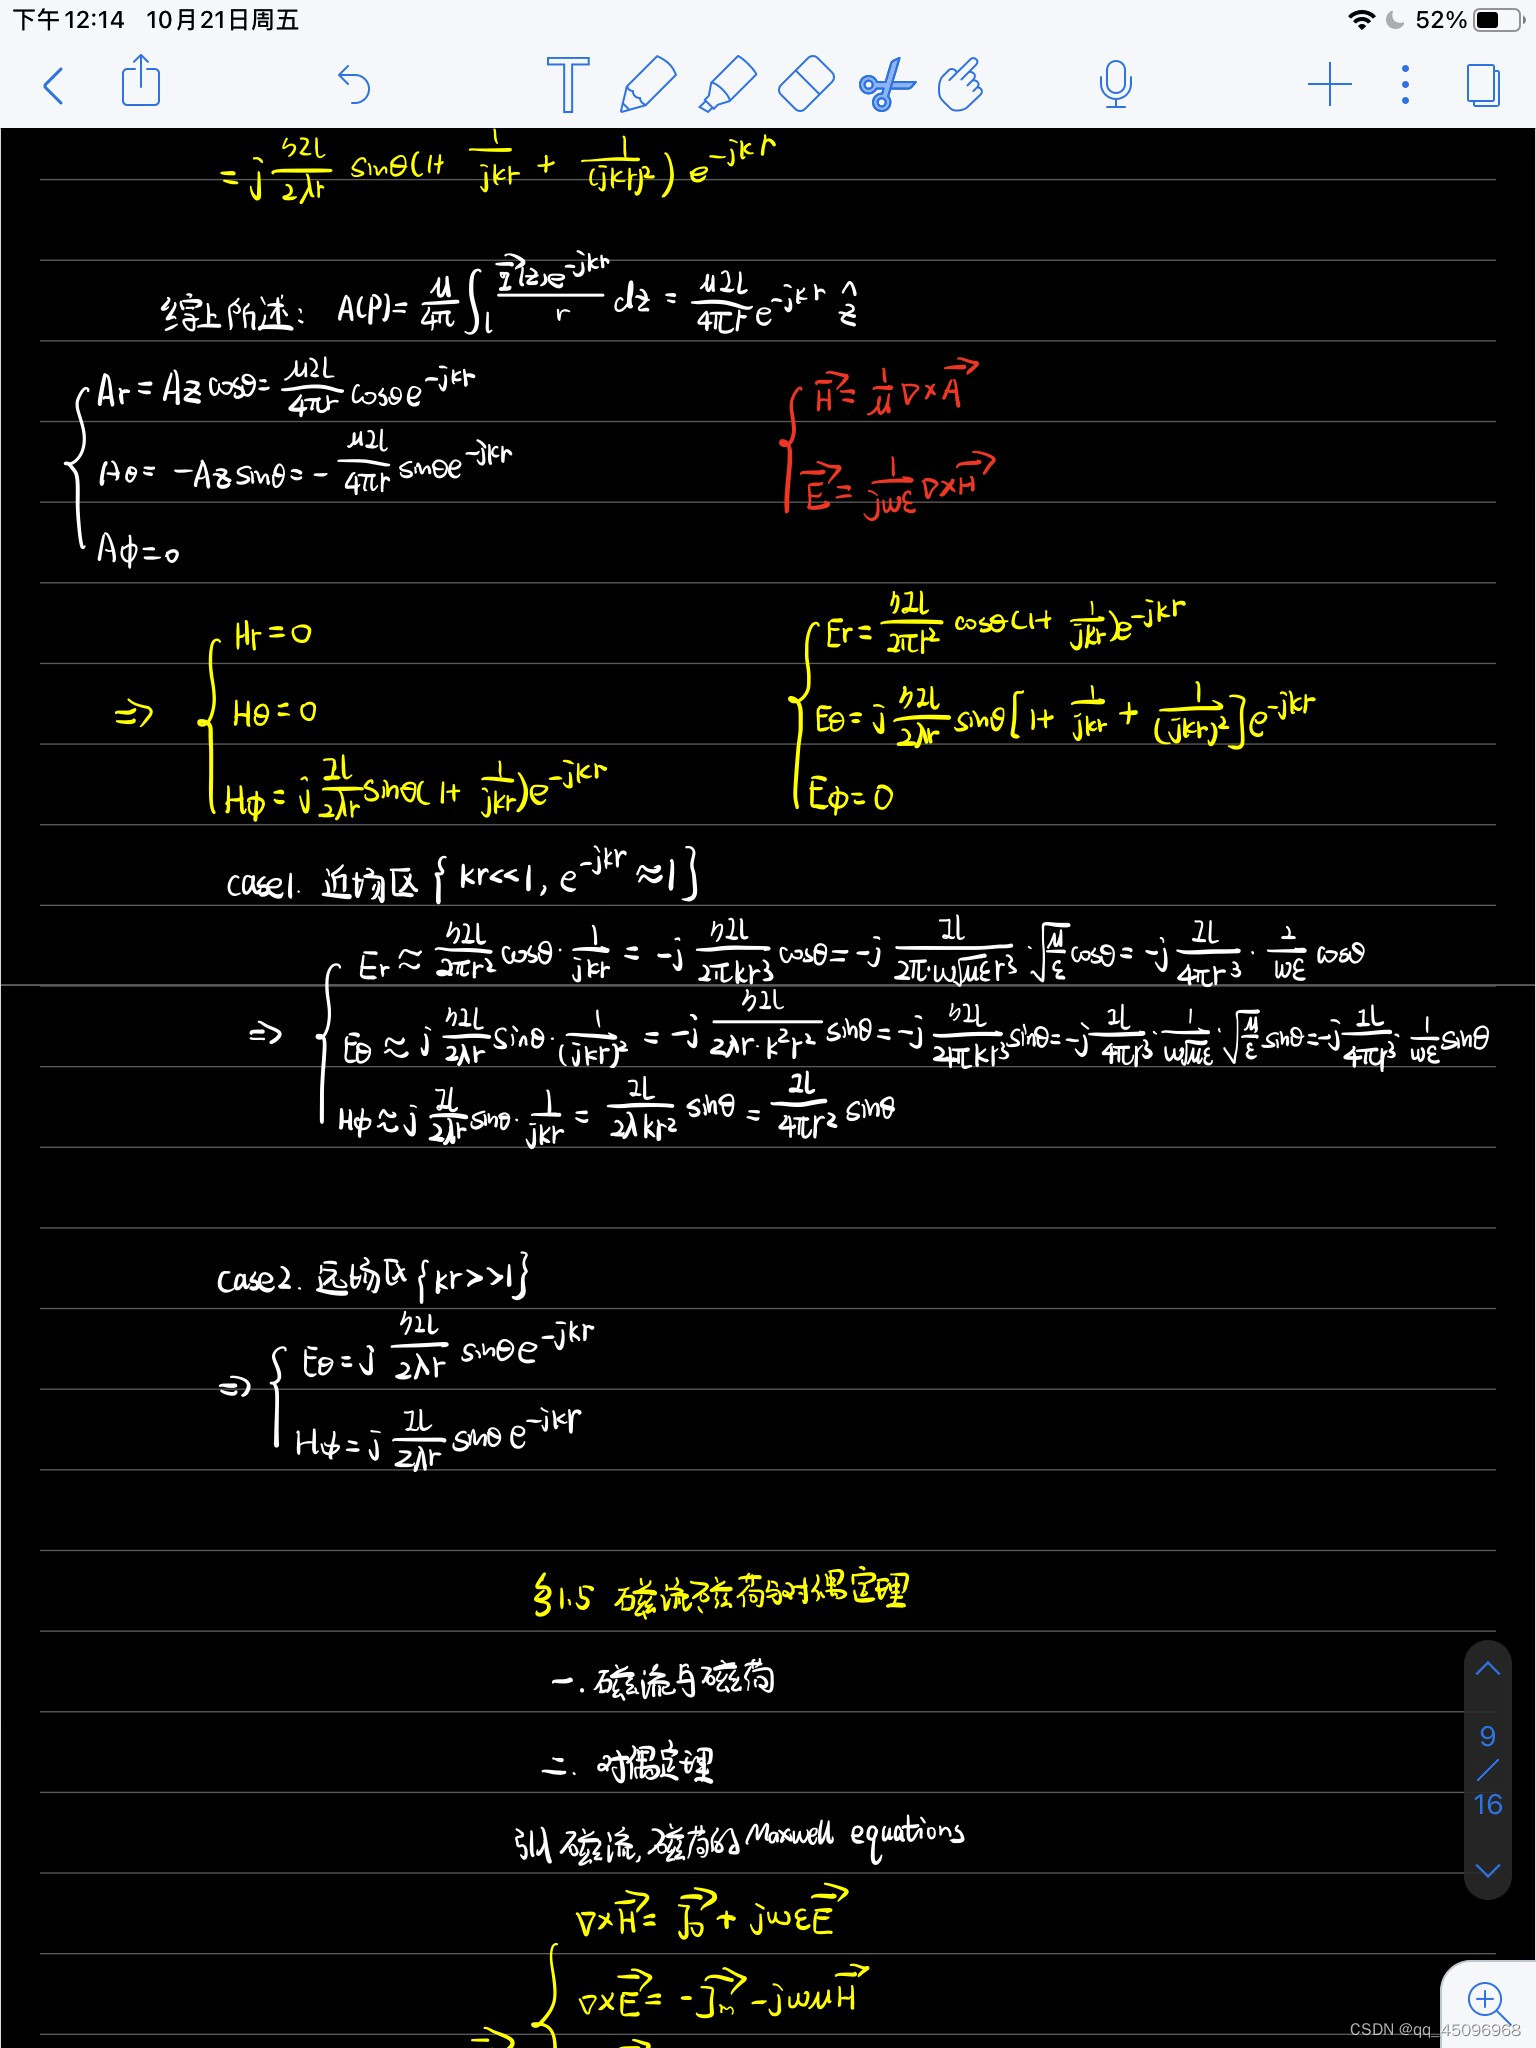 下午12:14 10月21日周五 52%
= j ηIl/2λr sinθ(1+ 1/jkr + 1/(jkr)²) e^-jkr
综上所述: A(P)= μ/4π ∫l I⃗(z)e^-jkr/r dz = μIl/4πr e^-jkr ẑ
Ar = Az cosθ= μIl/4πr cosθe^-jkr
H⃗= 1/μ ∇×A⃗
Aθ= -Az sinθ= - μIl/4πr sinθe^-jkr
E⃗= 1/jωε ∇×H⃗
Aφ=0
Hr=0
Er= ηIl/2πr² cosθ(1+ 1/jkr)e^-jkr
=> Hθ=0
Eθ= j ηIl/2λr sinθ[1+ 1/jkr + 1/(jkr)²]e^-jkr
Hφ= j Il/2λr sinθ(1+ 1/jkr)e^-jkr
Eφ=0
case1. 近场区{kr<<1, e^-jkr≈1}
Er ≈ ηIl/2πr² cosθ· 1/jkr = -j ηIl/2πkr³ cosθ= -j Il/2π·ω√με r³ ·√μ/ε cosθ= -j Il/4πr³ · 2/ωε cosθ
=> Eθ ≈ j ηIl/2λr sinθ· 1/(jkr)² = -j ηIl/2λr·k²r² sinθ= -j ηIl/24πkr³ sinθ= -j Il/4πr³ · 1/ω√με ·√μ/ε sinθ= -j Il/4πr³ · 1/ωε sinθ
Hφ≈ j Il/2λr sinθ· 1/jkr = Il/2λkr² sinθ = Il/4πr² sinθ
case2. 远场区{kr>>1}
=> Eθ= j ηIl/2λr sinθe^-jkr
Hφ= j Il/2λr sinθe^-jkr
§1.5 磁流磁荷与对偶定理
一. 磁流与磁荷
二. 对偶定理
引入磁流,磁荷的Maxwell equations
∇×H⃗= J⃗₀+ jωεE⃗
∇×E⃗= -J⃗m -jωμH⃗
=>
9
/
16
CSDN @qq_45096968